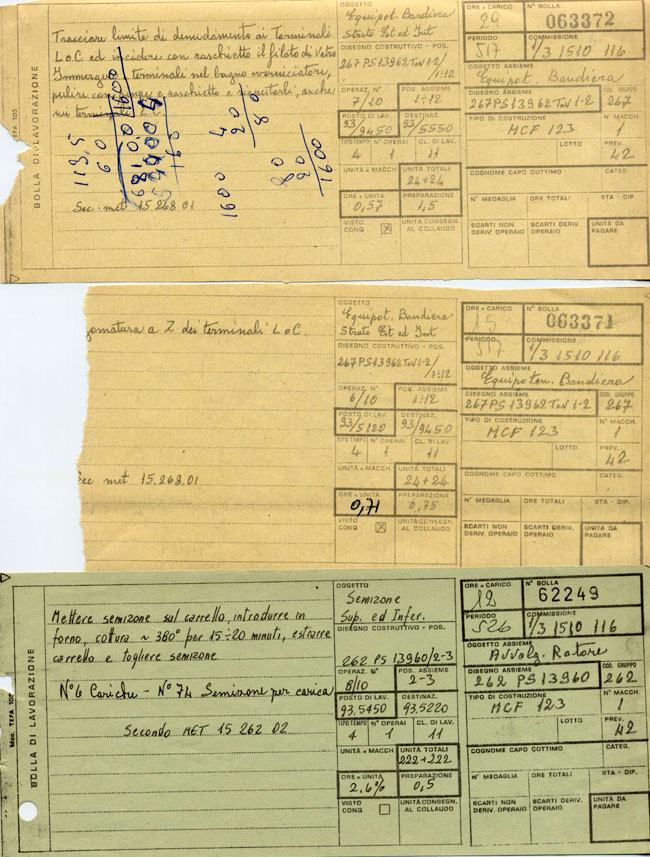 BOLLA DI LAVORAZIONE
TEFA 100
Tracciare limite di denudamento ai terminali
L o C ed incidere con raschietto il filato di vetro
Immergere terminali nel bagno sverniciatore,
pulire con
e raschietto e
anche
su terminale
113,5
60
1600
4
20
80
1600
Sec. met 15.268.01
OGGETTO
Equipot. Bandiera
Strato Est ed Int
DISEGNO COSTRUTTIVO - POS.
267 PS 13962 Tav 1-2/
/1÷12
OPERAZ. N° POS. ASSIEME
7/10 1÷12
POSTO DI LAV. DESTINAZ.
93/9450 93/5550
TIPO TEMPO N° OPERAI CL. DI LAV.
4 1 11
UNITÀ x MACCH. UNITÀ TOTALI
24+24
ORE x UNITÀ PREPARAZIONE
0,57 1,5
VISTO CONQ UNITÀ CONSEGN. AL COLLAUDO
ORE x CARICO N° BOLLA
29 063372
PERIODO COMMISSIONE
517 1/3 1510 116
OGGETTO ASSIEME
Equipot. Bandiera
DISEGNO ASSIEME COD. GRUPPO
267PS13962 Tav 1-2 267
TIPO DI COSTRUZIONE N° MACCH.
MCF 123 1
LOTTO PREV.
42
COGNOME CAPO COTTIMO CATEG.
N° MEDAGLIA ORE TOTALI STA - DIP.
SCARTI NON DERIV. OPERAIO SCARTI DERIV. OPERAIO UNITÀ DA PAGARE
gomatura a Z dei terminali L o C.
Sec met 15.268.01
OGGETTO
Equipot. Bandiera
Strato Est ed Int
DISEGNO COSTRUTTIVO - POS.
267 PS 13962 Tav 1-2/
/1÷12
OPERAZ. N° POS. ASSIEME
6/10 1÷12
POSTO DI LAV. DESTINAZ.
93/5120 93/9450
TIPO TEMPO N° OPERAI CL. DI LAV.
4 1 11
UNITÀ x MACCH. UNITÀ TOTALI
24+24
ORE x UNITÀ PREPARAZIONE
0,71 0,75
VISTO CONQ UNITÀ CONSEGN. AL COLLAUDO
ORE x CARICO N° BOLLA
15 063371
PERIODO COMMISSIONE
517 1/3 1510 116
OGGETTO ASSIEME
Equipoten. Bandiera
DISEGNO ASSIEME COD. GRUPPO
267PS13962 Tav 1-2 267
TIPO DI COSTRUZIONE N° MACCH.
MCF 123 1
LOTTO PREV.
42
COGNOME CAPO COTTIMO CATEG.
N° MEDAGLIA ORE TOTALI STA - DIP.
SCARTI NON DERIV. OPERAIO SCARTI DERIV. OPERAIO UNITÀ DA PAGARE
BOLLA DI LAVORAZIONE
Mod. TEFA 100
Mettere semizone sul carrello, introdurre in
forno, cottura ~ 380° per 15÷20 minuti, estrarre
carrello e togliere semizone
N°6 Cariche - N° 74 Semizone per carica
Secondo MET 15 262 02
OGGETTO
Semizone
Sup. ed Infer.
DISEGNO COSTRUTTIVO - POS.
262 PS 13960/2-3
OPERAZ. N° POS. ASSIEME
8/10 2-3
POSTO DI LAV. DESTINAZ.
93.5450 93.5220
TIPO TEMPO N° OPERAI CL. DI LAV.
4 1 11
UNITÀ x MACCH. UNITÀ TOTALI
222+222
ORE x UNITÀ PREPARAZIONE
2.6% 0,5
VISTO CONQ UNITÀ CONSEGN. AL COLLAUDO
ORE x CARICO N° BOLLA
12 62249
PERIODO COMMISSIONE
526 1/3 1510 116
OGGETTO ASSIEME
Avvolg. Rotore
DISEGNO ASSIEME COD. GRUPPO
262 PS 13960 262
TIPO DI COSTRUZIONE N° MACCH.
MCF 123 1
LOTTO PREV.
42
COGNOME CAPO COTTIMO CATEG.
N° MEDAGLIA ORE TOTALI STA - DIP.
SCARTI NON DERIV. OPERAIO SCARTI DERIV. OPERAIO UNITÀ DA PAGARE